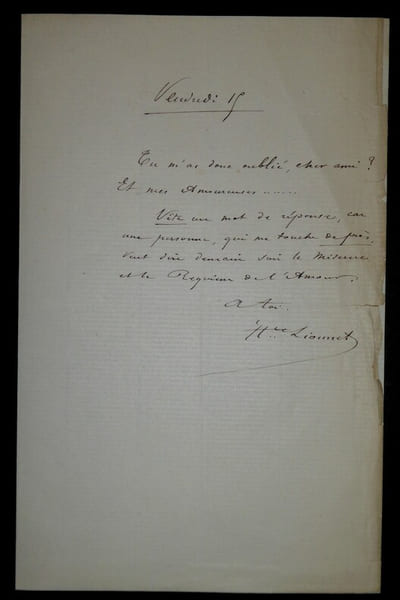 Vendredi 15
Tu m'as donc oublié, cher ami ?
Et mes Amoureuses .....
Vite un mot de réponse, car
une personne, qui me touche de près,
veut dire demain soir le Miserere
et le Requiem de l'Amour.
A toi.
Hte Lionnet